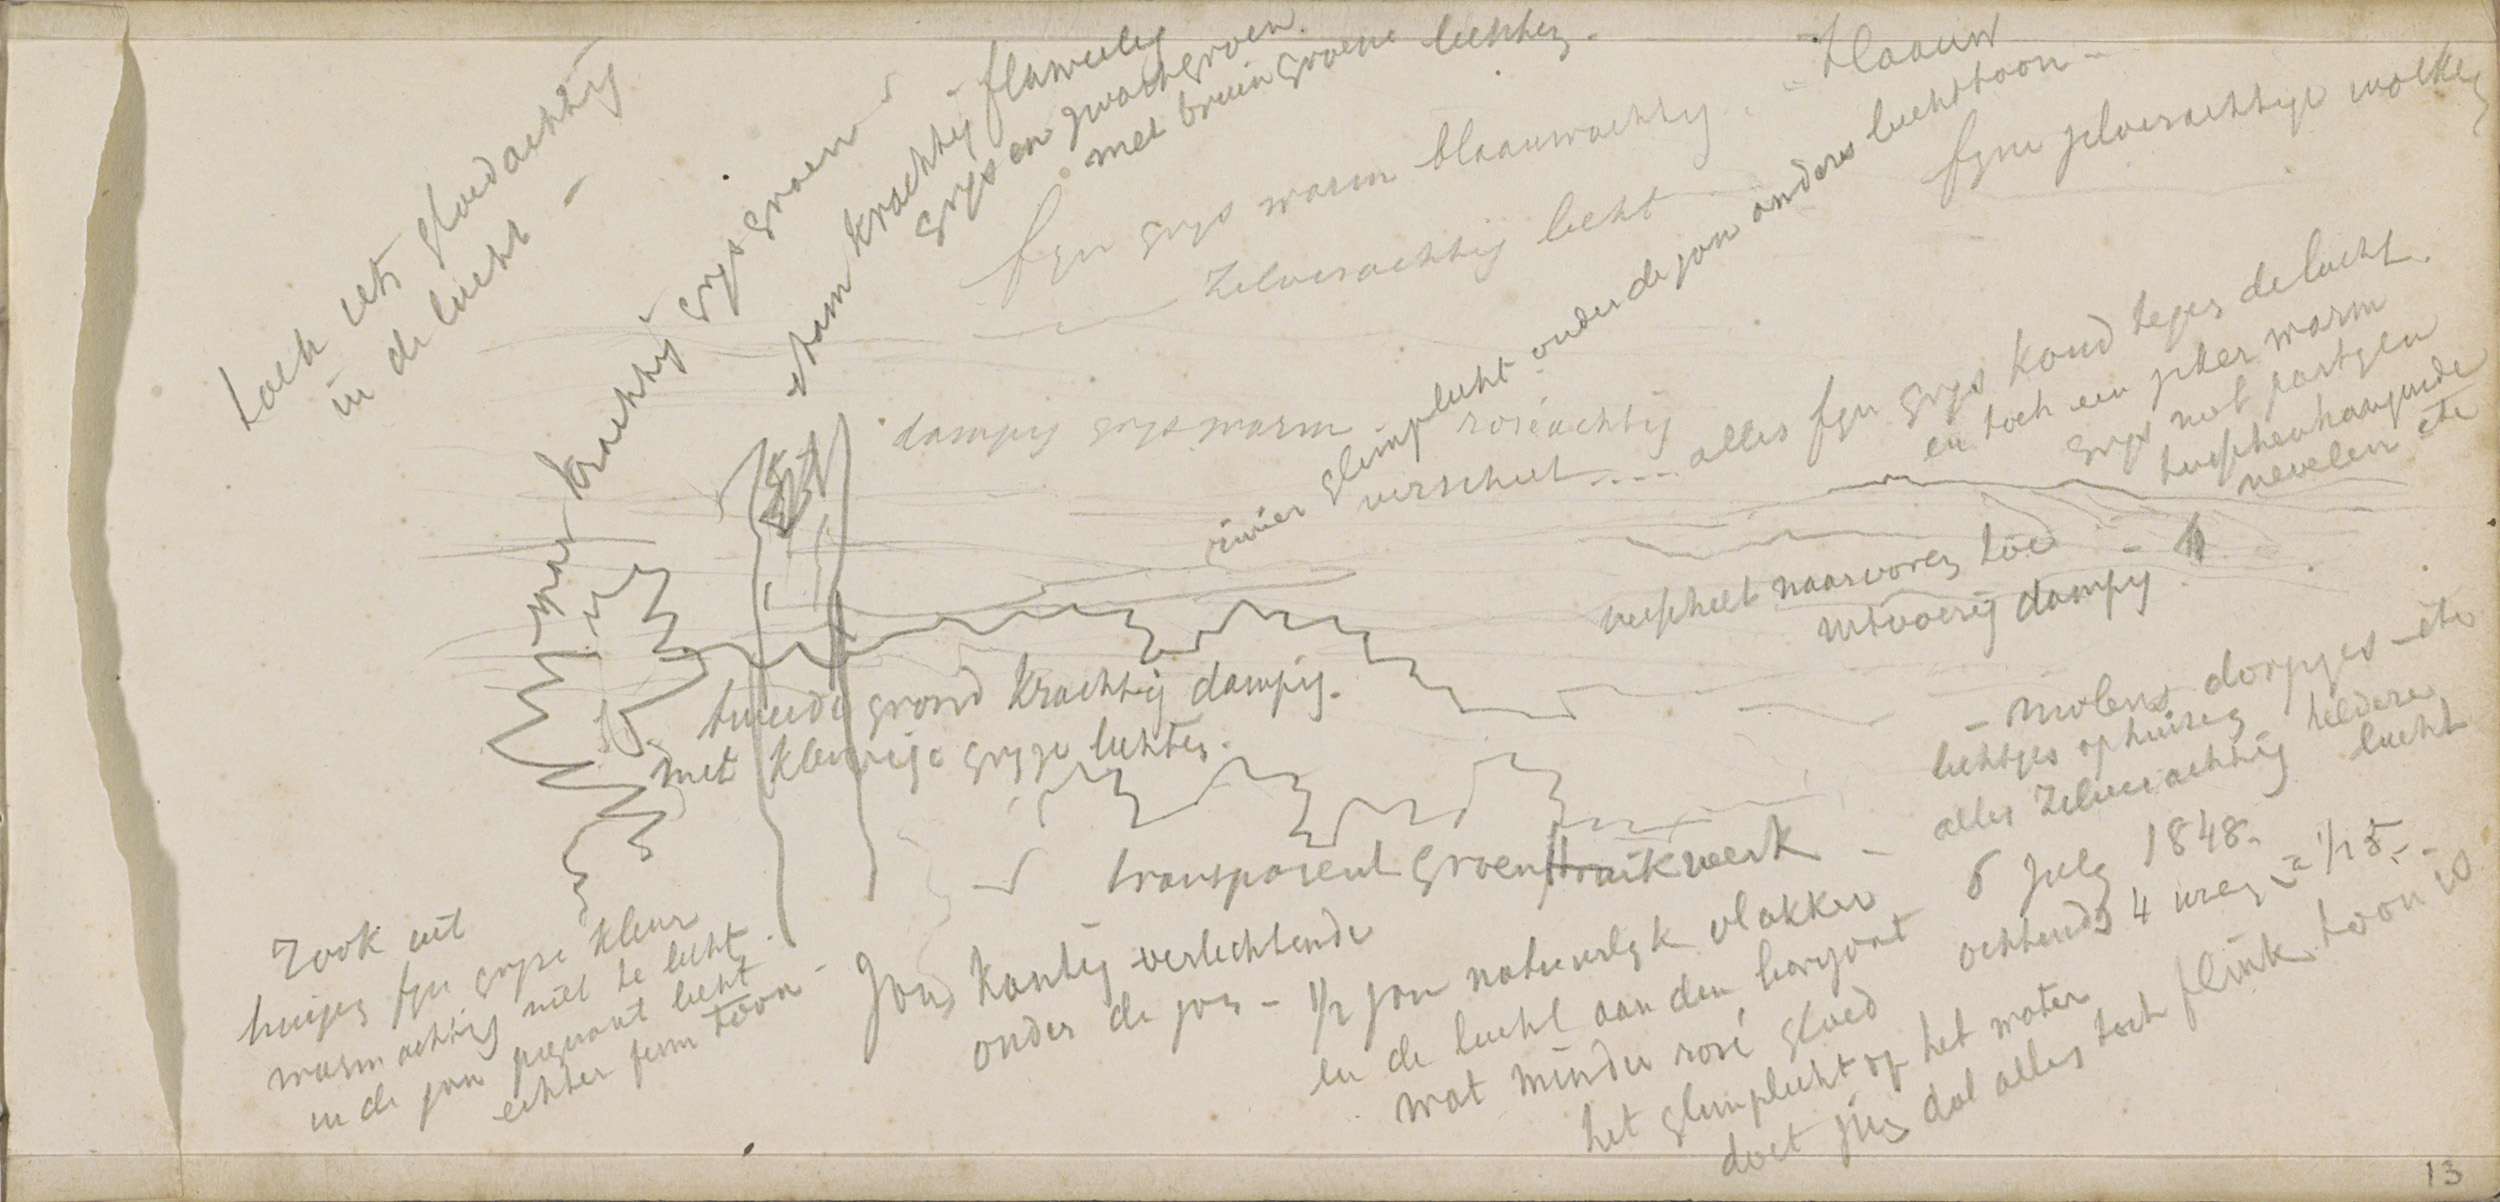 toch iets gloedachtig
in de lucht -
maar krachtig grys groen
stam krachtig - fluweelig
grys en zwart groen.
met bruin groene lichten.
fyn grys warm blaauwachtig
- blaauw
Zilverachtig licht
fyne zilverachtige wolken
dampig grys warm
roséachtig
rivier glimplicht onder de zon anders luchttoon -
verschiet .... alles fyn grys koud tegen de lucht.
en toch een zeker warm
grys met partyen
tusschenhangende
nevelen etc
verschiet naar voren toe -
uitvoerig dampig
tweede grond krachtig dampig.
met kleurige gryze lichten.
- molens dorpjes - etc
lichtjes op huizen
alles zilverachtig heldere
lucht
transparent groen struikwerk -
6 July 1848.
ochtends 4 uren à 1/2 5. -
Rook uit
huizen fyn gryze kleur
warmachtig niet te licht.
in de zon piquant licht
echter ferm toon -
Zons kantig verlichtende
onder de zon - 1/2 zon natuurlyk vlakker
en de lucht aan den horizont
wat minder rosé gloed
het glimplicht op het water
doet zien dat alles toch flink toon is
13